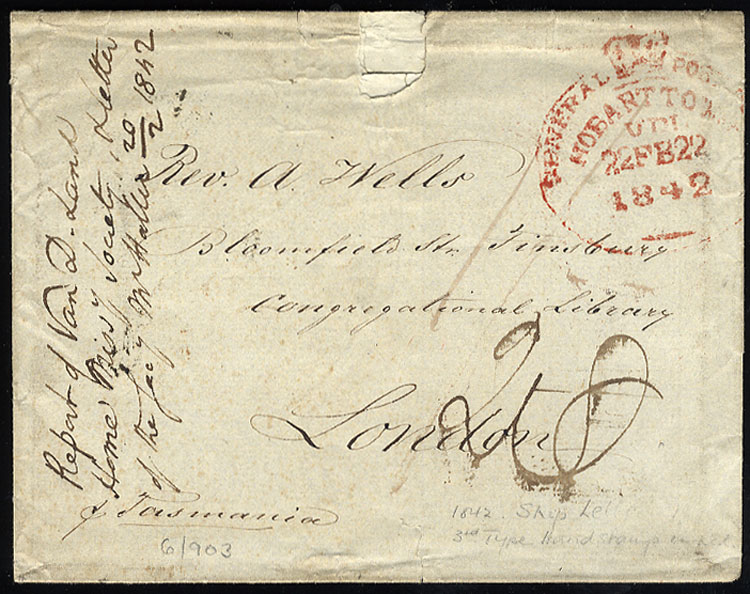 GENERAL POS
HOBART TO
22FB22
1842
Rev. A. Wells
Bloomfield Str Finsbury
Congregational Library
London
p Tasmania
Report of Van D. Land
Home Missy Society & letter
of the Secy Mr 20/2 1842
1842. Ship Le
3rd Type Hand stamp in red
6/903